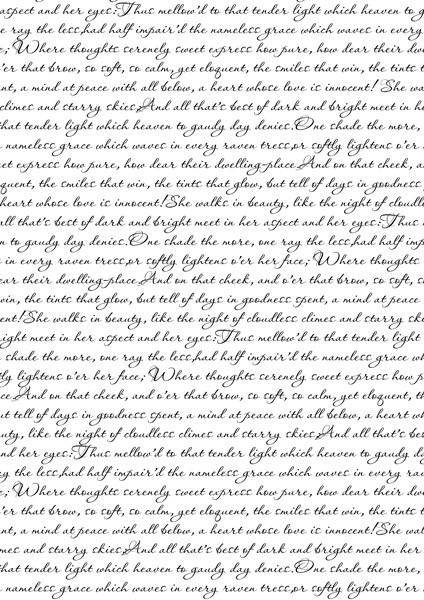 aspect and her eyes:Thus mellow'd to that tender light which heaven to g
e ray the less,had half impair'd the nameless grace which waves in every
e; Where thoughts serenely sweet express how pure, how dear their dwe
o'er that brow, so soft, so calm, yet eloquent, the smiles that win, the tints t
nt, a mind at peace with all below, a heart whose love is innocent! She wa
climes and starry skies;And all that's best of dark and bright meet in he
that tender light which heaven to gaudy day denies.One shade the more,
nameless grace which waves in every raven tress,or softly lightens o'er h
eet express how pure, how dear their dwelling-place.And on that cheek, a
quent, the smiles that win, the tints that glow, but tell of days in goodness
heart whose love is innocent!She walks in beauty, like the night of cloudle
all that's best of dark and bright meet in her aspect and her eyes:Thus
n to gaudy day denies.One shade the more, one ray the less,had half imp
in every raven tress,or softly lightens o'er her face; Where thoughts
ear their dwelling-place.And on that cheek, and o'er that brow, so soft, s
win, the tints that glow, but tell of days in goodness spent, a mind at peace
ent!She walks in beauty, like the night of cloudless climes and starry skies
right meet in her aspect and her eyes:Thus mellow'd to that tender light
shade the more, one ray the less,had half impair'd the nameless grace wh
tly lightens o'er her face; Where thoughts serenely sweet express how p
ce.And on that cheek, and o'er that brow, so soft, so calm, yet eloquent, th
ut tell of days in goodness spent, a mind at peace with all below, a heart wh
uty, like the night of cloudless climes and starry skies;And all that's bes
and her eyes:Thus mellow'd to that tender light which heaven to gaudy da
y the less,had half impair'd the nameless grace which waves in every rav
e; Where thoughts serenely sweet express how pure, how dear their dwe
o'er that brow, so soft, so calm, yet eloquent, the smiles that win, the tints t
nt, a mind at peace with all below, a heart whose love is innocent!She wal
mes and starry skies;And all that's best of dark and bright meet in her
that tender light which heaven to gaudy day denies.One shade the more,
nameless grace which waves in every raven tress,or softly lightens o'er h